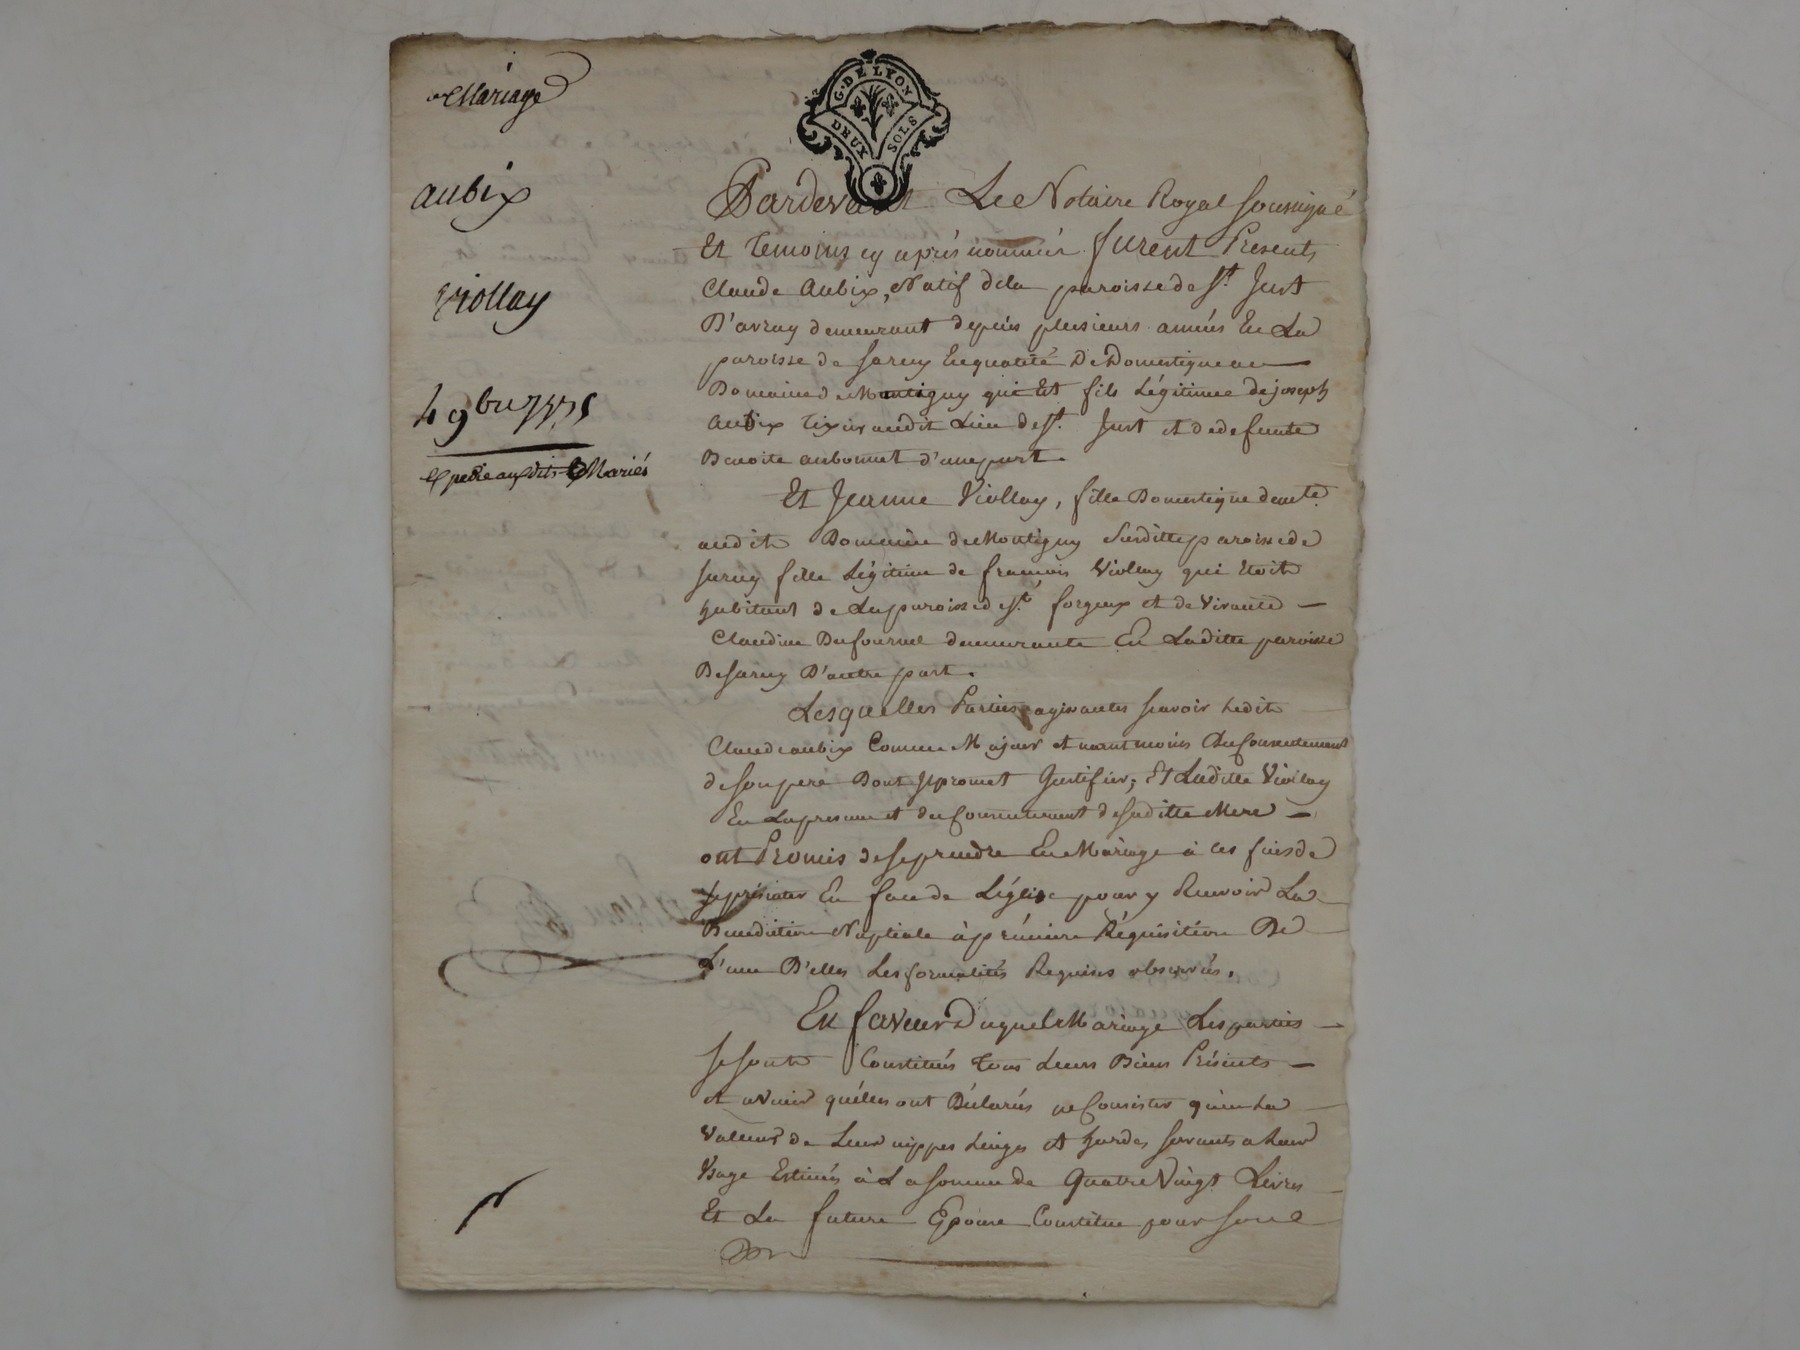 Mariage
aubix
viollay
4 9bre 1775
Expedié auxdits Mariés
G. DE LYON
DEUX SOLS
Pardevant Le Notaire Royal soussigné
Et Temoins cy après nommés furent Presents
Claude Aubix, Natif dela paroisse de St. Just
D'avray demeurant depuis plusieurs années En La
paroisse de Sarcey Enqualité De Domestique au
Domaine de Montigny qui Est fils Légitime de joseph
Aubix Tixier audit Lieu de St. Just et de defunte
Benoite aubonnet d'une part.
Et Jeanne Viollay, fille Domestique demte.
audit Domaine de Montigny Susditte paroisse de
Sarcey fille Légitime de francois Viollay qui Etoit
habitant de La paroisse de St. forgeux et de Vivante
Claudine Dufournel demeurante En Laditte paroisse
De Sarcey D'autre part.
Lesquelles Parties agissantes scavoir Ledit
Claude aubix Comme Majeur et neantmoins Du Consentement
de son pere Dont Il promet Justifier; Et Laditte Viollay
En La presence et du Consentement de Saditte Mere
ont Promis de se prendre En Mariage à ces fins de
se présenter En face de L'église pour y Recevoir La
Benediction Nuptiale à prémiere Réquisition De
L'une D'elles Les formalités Requises observées.
En faveur Duquel Mariage Les parties
se sont Constitués Tous Leurs Biens Présents
et avenir qu'elles ont Déclarés ne Consister qu'en La
Valleur de Leurs nippes Linges et hardes servants a Leur
Usage Estimés à La somme de Quatre Vingt Livres
Et La future Epouse Constitue pour